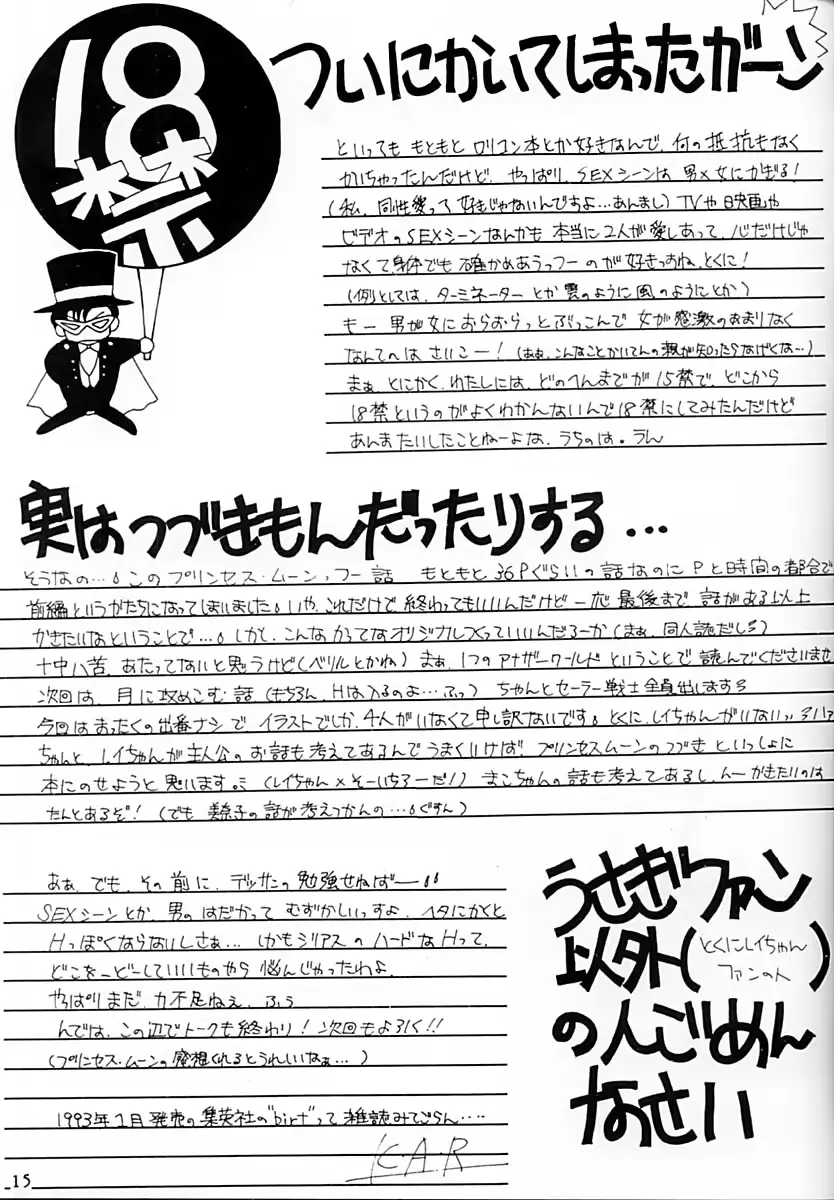 18禁
ついにかいてしまったガーン
といっても もともと ロリコン本とか好きなんで、何の抵抗もなく
かいちゃったんだけど、やっぱり、SEXシーンは 男×女にかぎる!
(私、同性愛って 好きじゃないんですよ…あんまし) TVや 映画や
ビデオのSEXシーンなんかも 本当に2人が愛しあって、心だけじゃ
なくて身体でも 確かめあうっつーのが好きっすね、とくに!
(例としては、ターミネーター とか 雲のように 風のように とか)
もー 男が女におらおらっとぶっこんで 女が感激のあまりなく
なんてのは さいこー!(あぁ、こんなことかいてんの親が知ったらなげくな…)
まぁ とにかく、わたしには、どのへんまでが 15禁で、どこから
18禁というのがよくわかんないんで18禁にしてみたんだけど
あんまたいしたことねーよな、うちのは。うん
実はつづきもんだったりする…
そうなの…。このプリンセス・ムーンっつー話 もともと36Pぐらいの話なのに Pと時間の都合で
前編というかたちになってしまいました。いや、これだけで終わってもいいんだけど 一応 最後まで 話がある以上
かきたいなということで…。しかし、こんなかってなオリジナルつくっていいんだろーか(まぁ、同人誌だしろ)
十中八苦、あたってないと思うけど(ベリルとかね) まぁ、1つのアナザーワールド ということで 読んでくださいませ
次回は、月に攻めこむ話 (もちろん、Hは入るのよ…ふっ) ちゃんとセーラー戦士全員出します
今回はまったくの出番ナシで イラストでしか、4人がいなくて申し訳ないです。とくに、レイちゃんがいない
ちゃんと、レイちゃんが主人公の お話も考えてあるんで うまくいけば、プリンセスムーンのつづき といっしょに
本にのせようと 思います。(レイちゃん×そーいちろーだ!) まこちゃんの話も考えてあるし、んー かきたいのは
たんとあるぞ! (でも 美奈子の話が考えつかんの…。ぐすん)
あぁ、でも、その前に、デッサンの勉強せねばー
SEXシーンとか、男のはだかって むずかしいっすよ、ヘタにかくと
Hっぽくならないしさぁ… しかもシリアスのハードなHって、
どこをーどーしていいものやら 悩んじゃったわよ、
やっぱりまだ、力不足ねぇ、ふぅ
んでは、この辺でトークも終わり! 次回もよろしく!!
(プリンセス・ムーンの感想くれるとうれしいなぁ…)
1993年1月発売の集英社の"birt"って雑誌みてごらん…
K.A.R
うさぎファン
以外(とくにレイちゃん
ファンの人)
の人ごめん
なさい
15